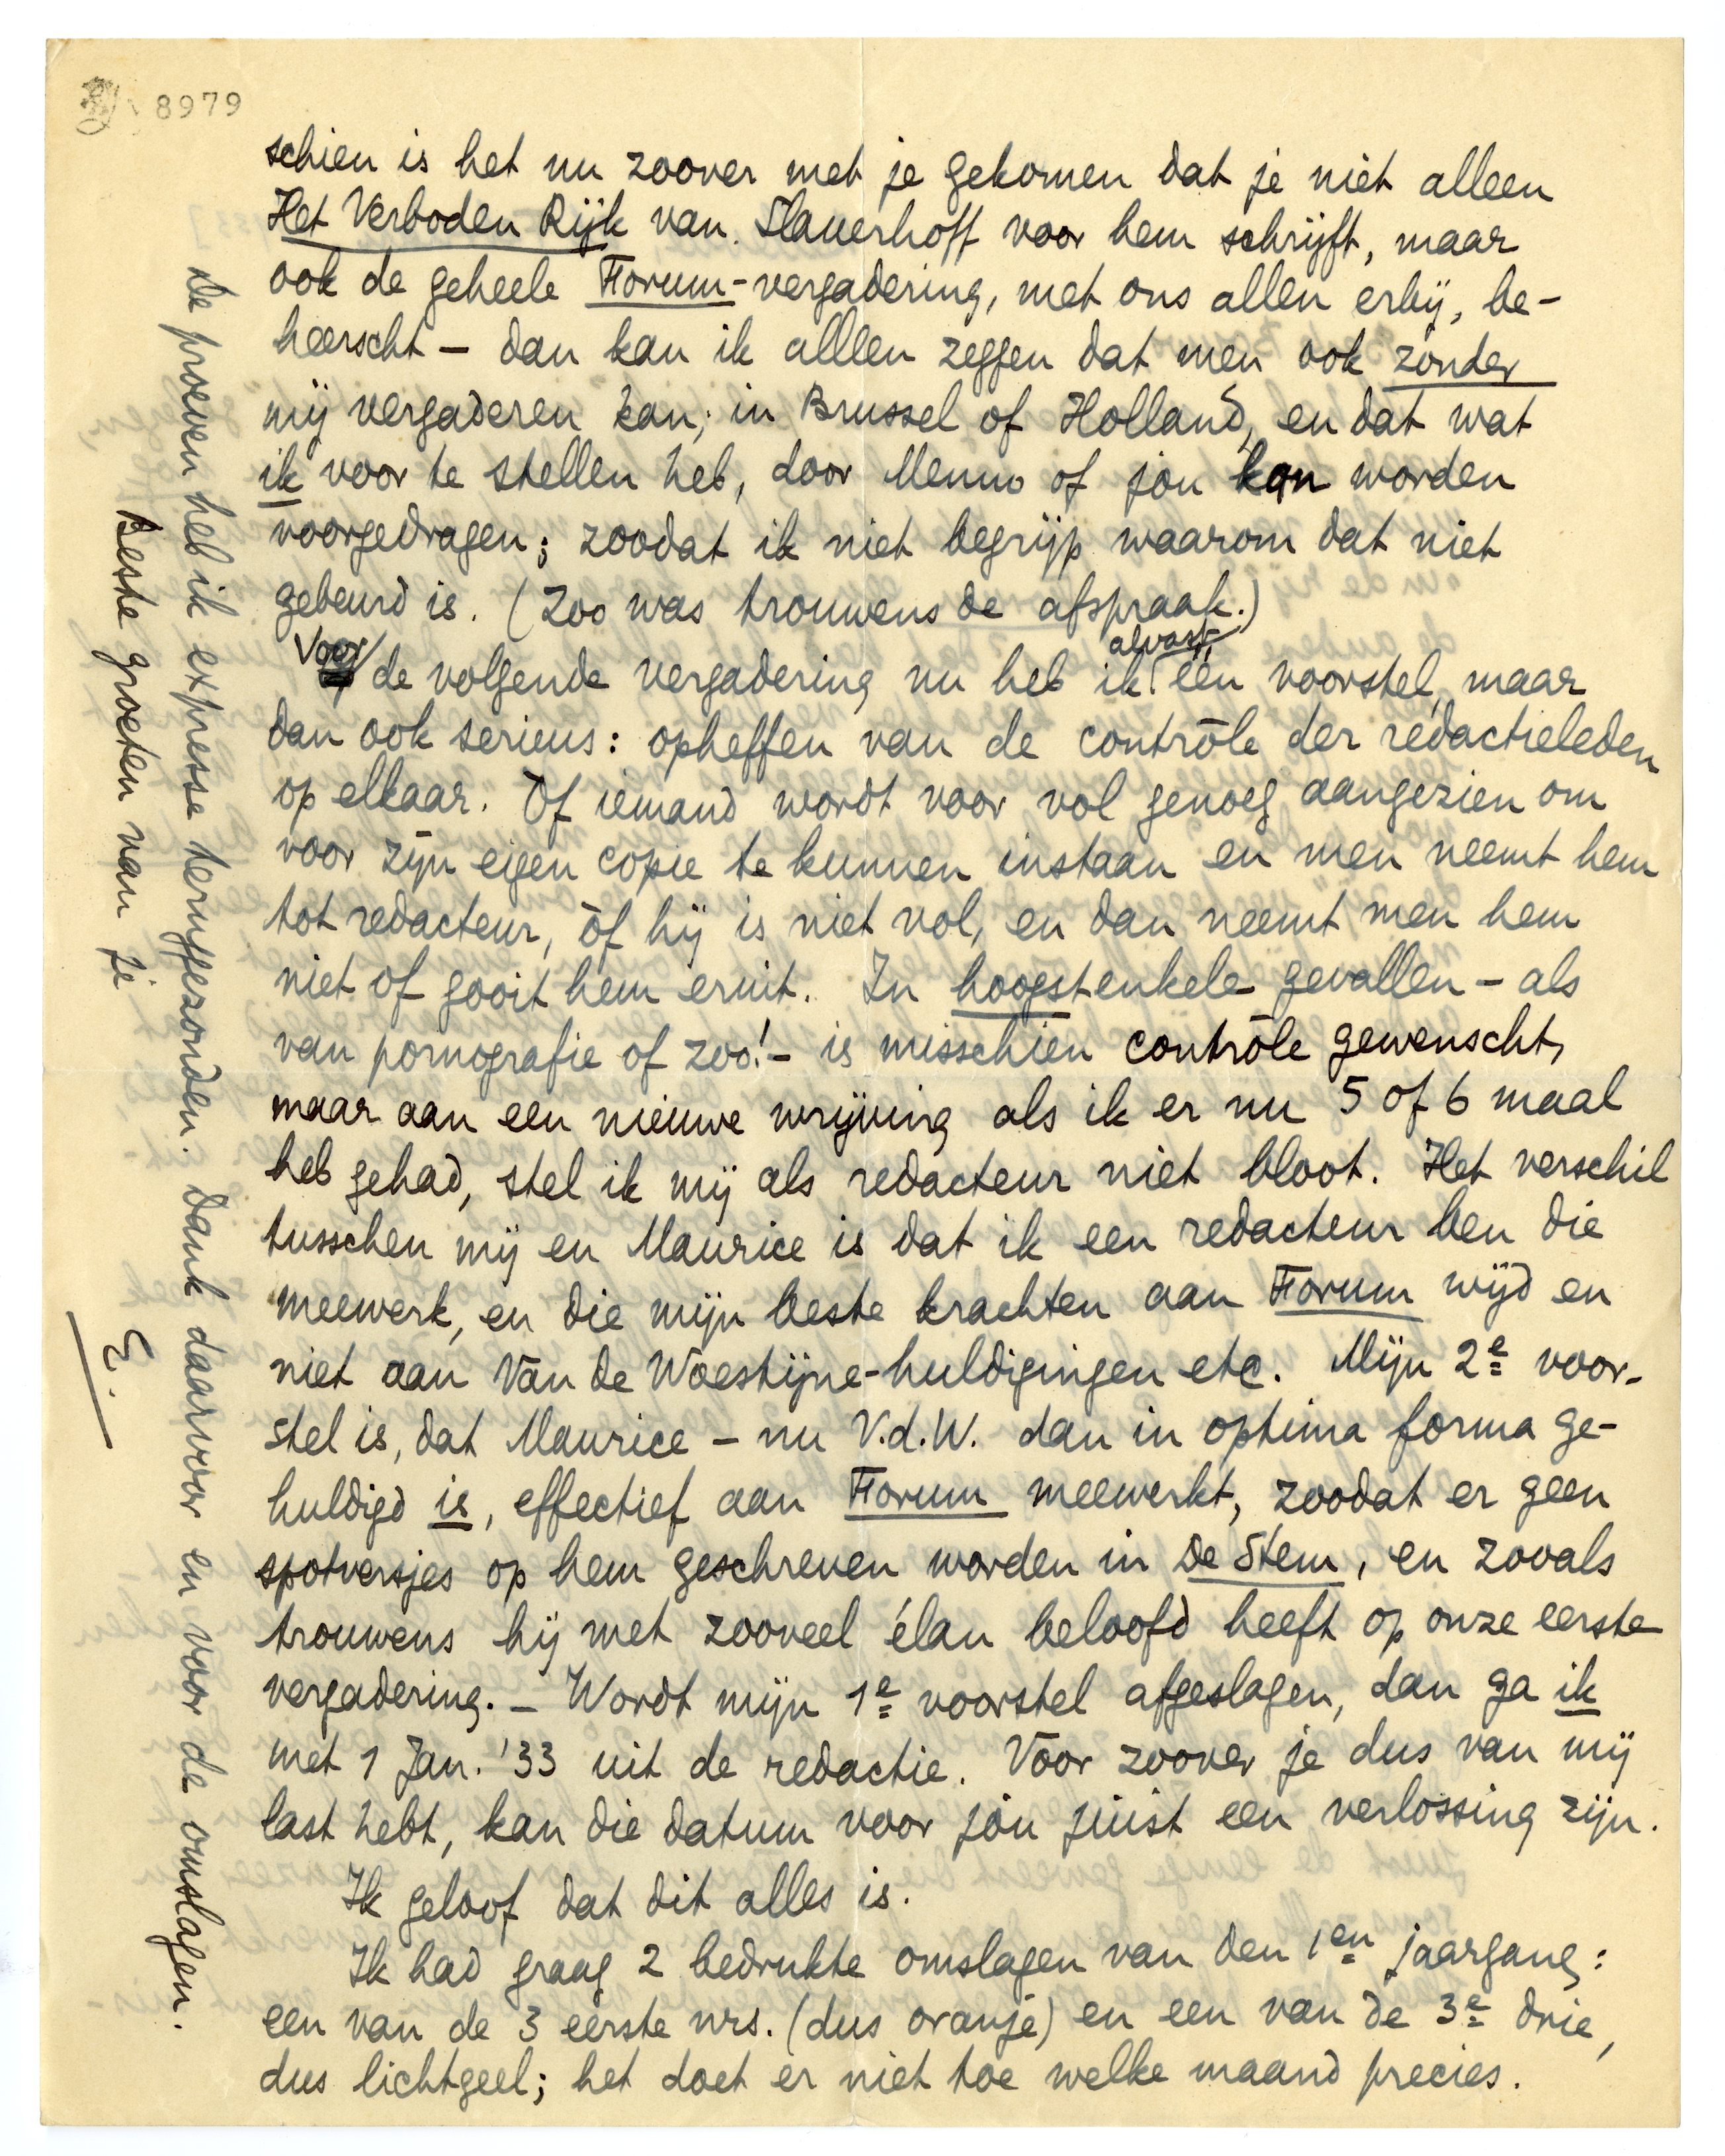 8979
schien is het nu zoover met je gekomen dat je niet alleen
Het Verboden Rijk van Slauerhoff voor hem schrijft, maar
ook de geheele Forum-vergadering, met ons allen erbij, be-
heerscht – dan kan ik alllen zeggen dat men ook zonder
mij vergaderen kan, in Brussel of Holland, en dat wat
ik voor te stellen heb, door Menno of jou kan worden
voorgedragen; zoodat ik niet begrijp waarom dat niet
gebeurd is. (Zoo was trouwens de afspraak.)
Voor de volgende vergadering nu heb ik alvast één voorstel, maar
dan ook serieus: opheffen van de contrôle der redactieleden
op elkaar. Òf iemand wordt voor vol genoeg aangezien om
voor zijn eigen copie te kunnen instaan en men neemt hem
tot redacteur, òf hij is niet vol, en dan neemt men hem
niet of gooit hem eruit. In hoogstenkele gevallen – als
van pornografie of zoo! – is misschien contrôle gewenscht,
maar aan een nieuwe wrijving als ik er nu 5 of 6 maal
heb gehad, stel ik mij als redacteur niet bloot. Het verschil
tusschen mij en Maurice is dat ik een redacteur ben die
meewerk, en die mijn beste krachten aan Forum wijd en
niet aan Van de Woestijne-huldigingen etc. Mijn 2e voor-
stel is, dat Maurice – nu V.d.W. dan in optima forma ge-
huldigd is, effectief aan Forum meewerkt, zoodat er geen
spotversjes op hem geschreven worden in De Stem, en zooals
trouwens hij met zooveel élan beloofd heeft op onze eerste
vergadering. – Wordt mijn 1e voorstel afgeslagen, dan ga ik
met 1 Jan. '33 uit de redactie. Voor zoover je dus van mij
last hebt, kan die datum voor jòu juist een verlossing zijn.
Ik geloof dat dit alles is.
Ik had graag 2 bedrukte omslagen van den 1en jaargang:
een van de 3 eerste nrs. (dus oranje) en een van de 3e drie,
dus lichtgeel; het doet er niet toe welke maand precies.
De proeven heb ik expresse teruggezonden. Dank daarvoor en voor de omslagen.
Beste groeten van je
E.